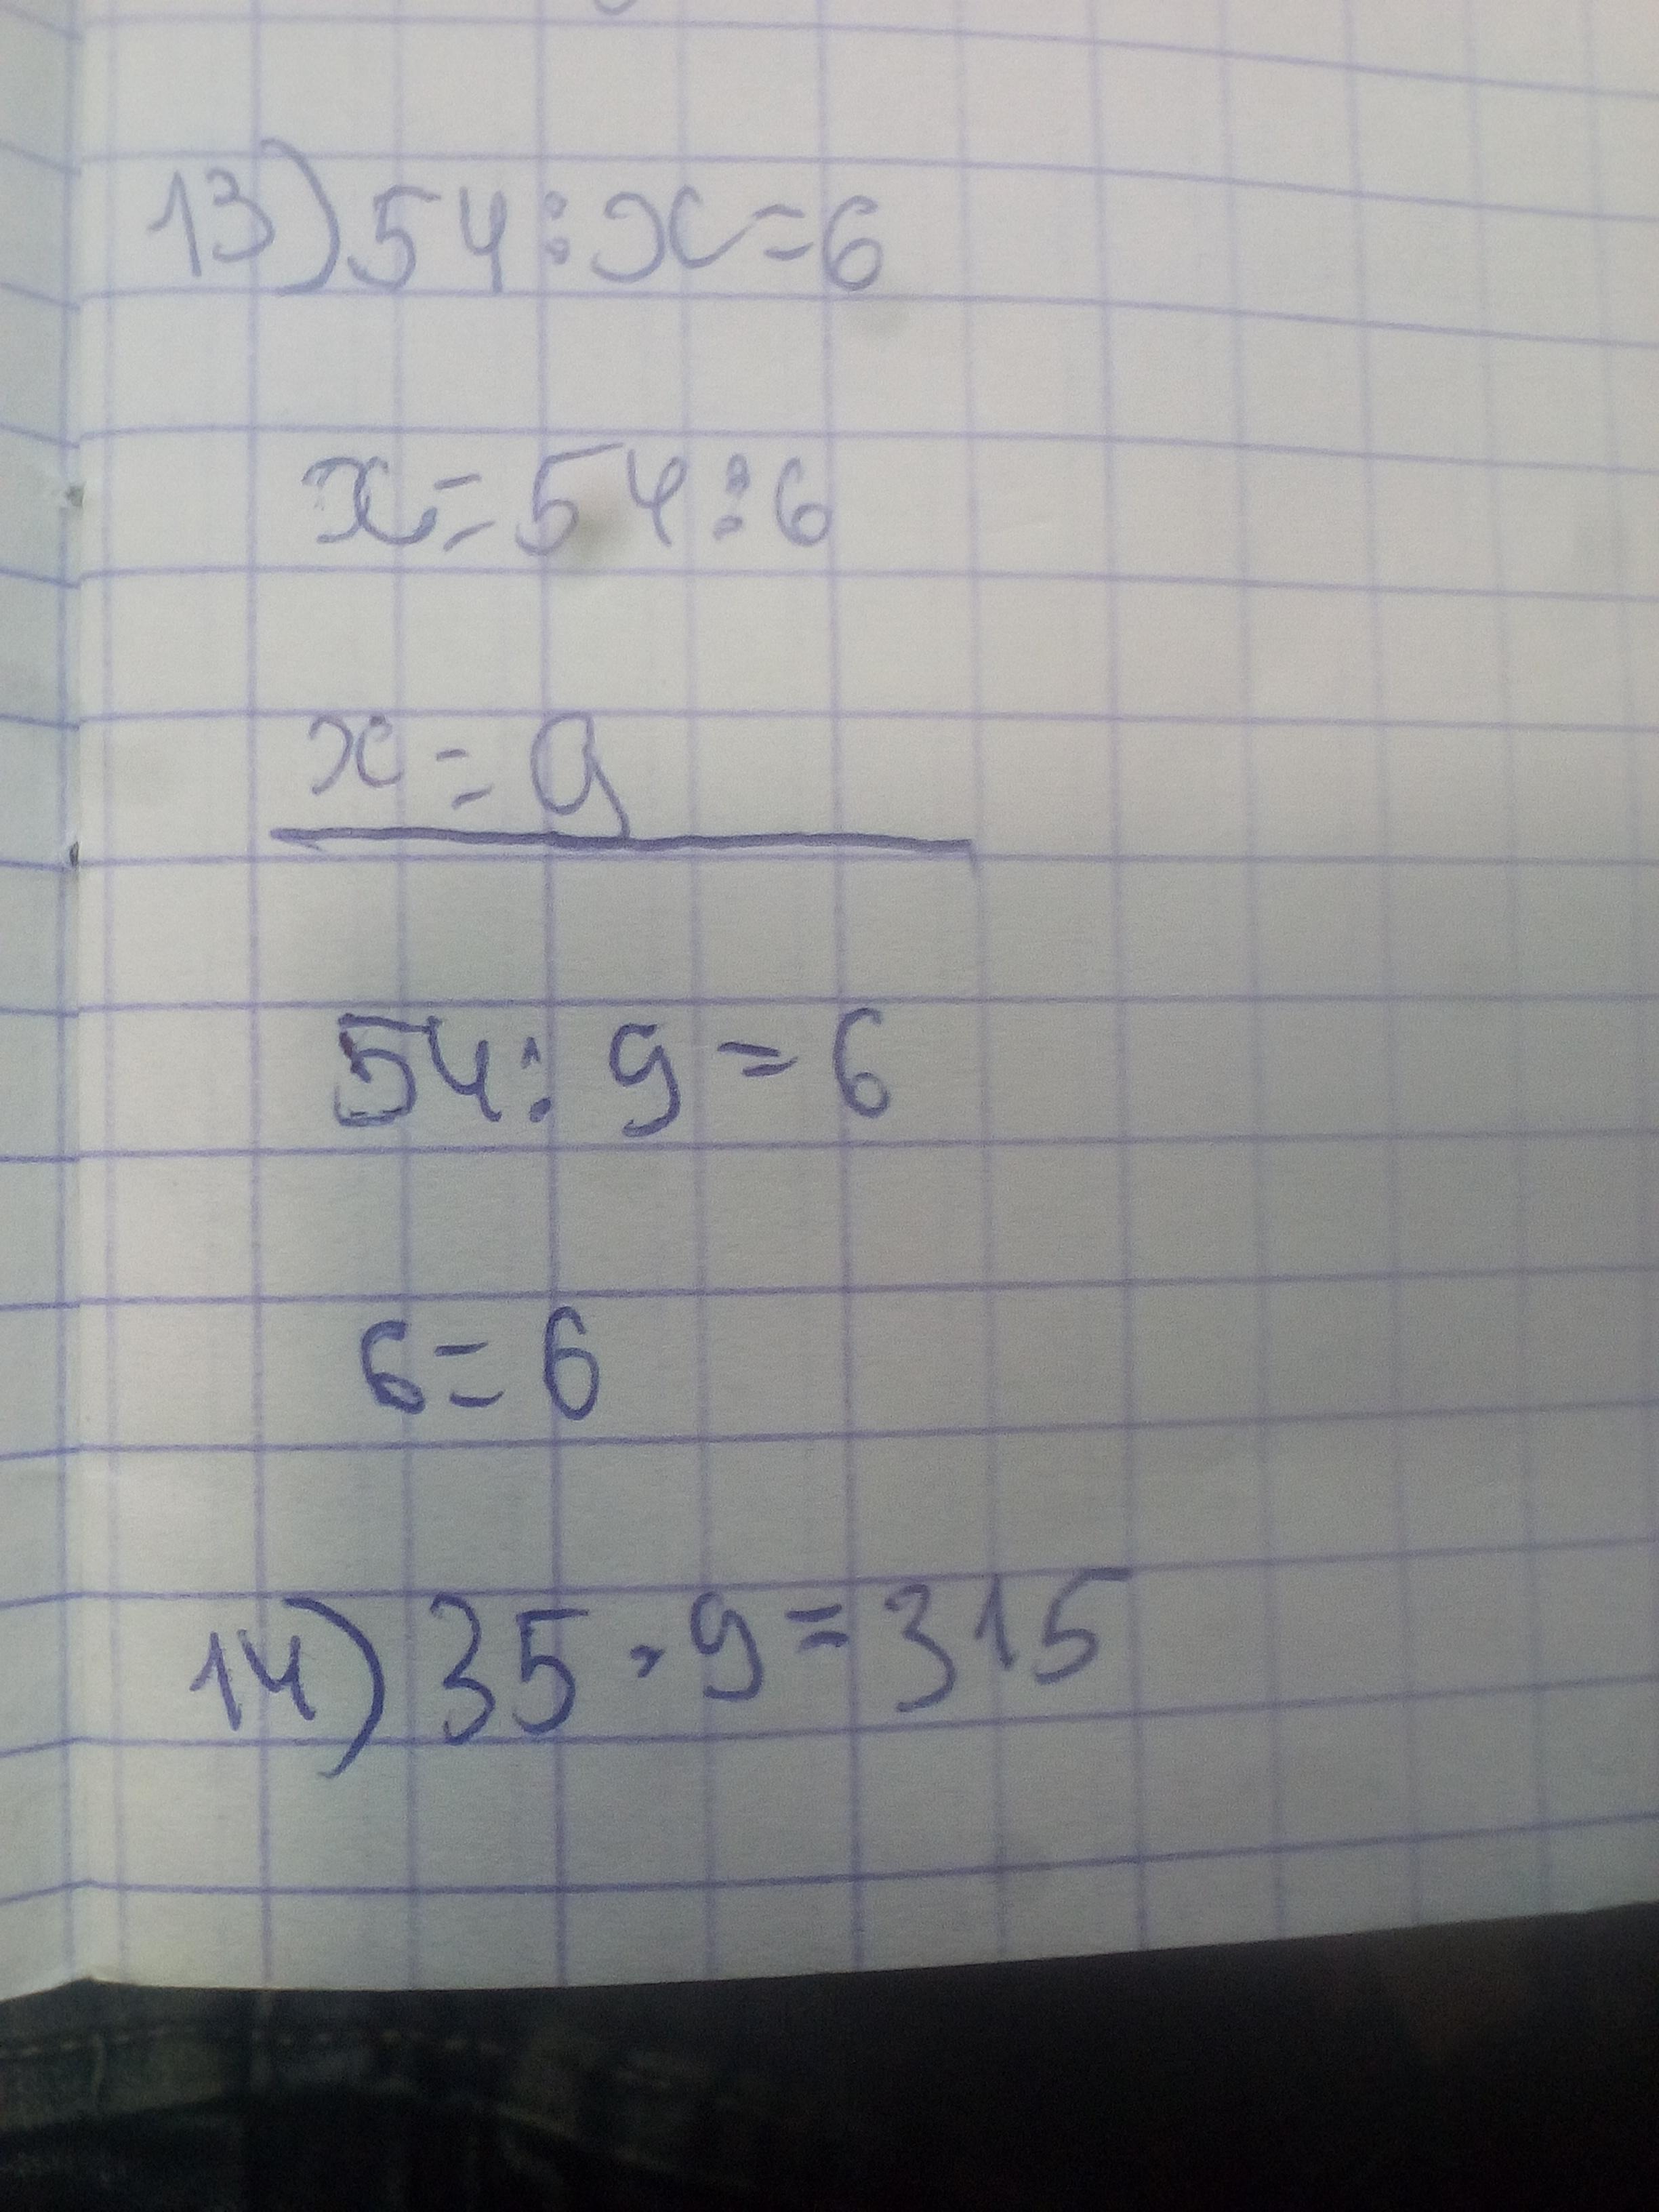 13) 54 : x = 6
x = 54 : 6
x = 9
54 : 9 = 6
6 = 6
14) 35 · 9 = 315